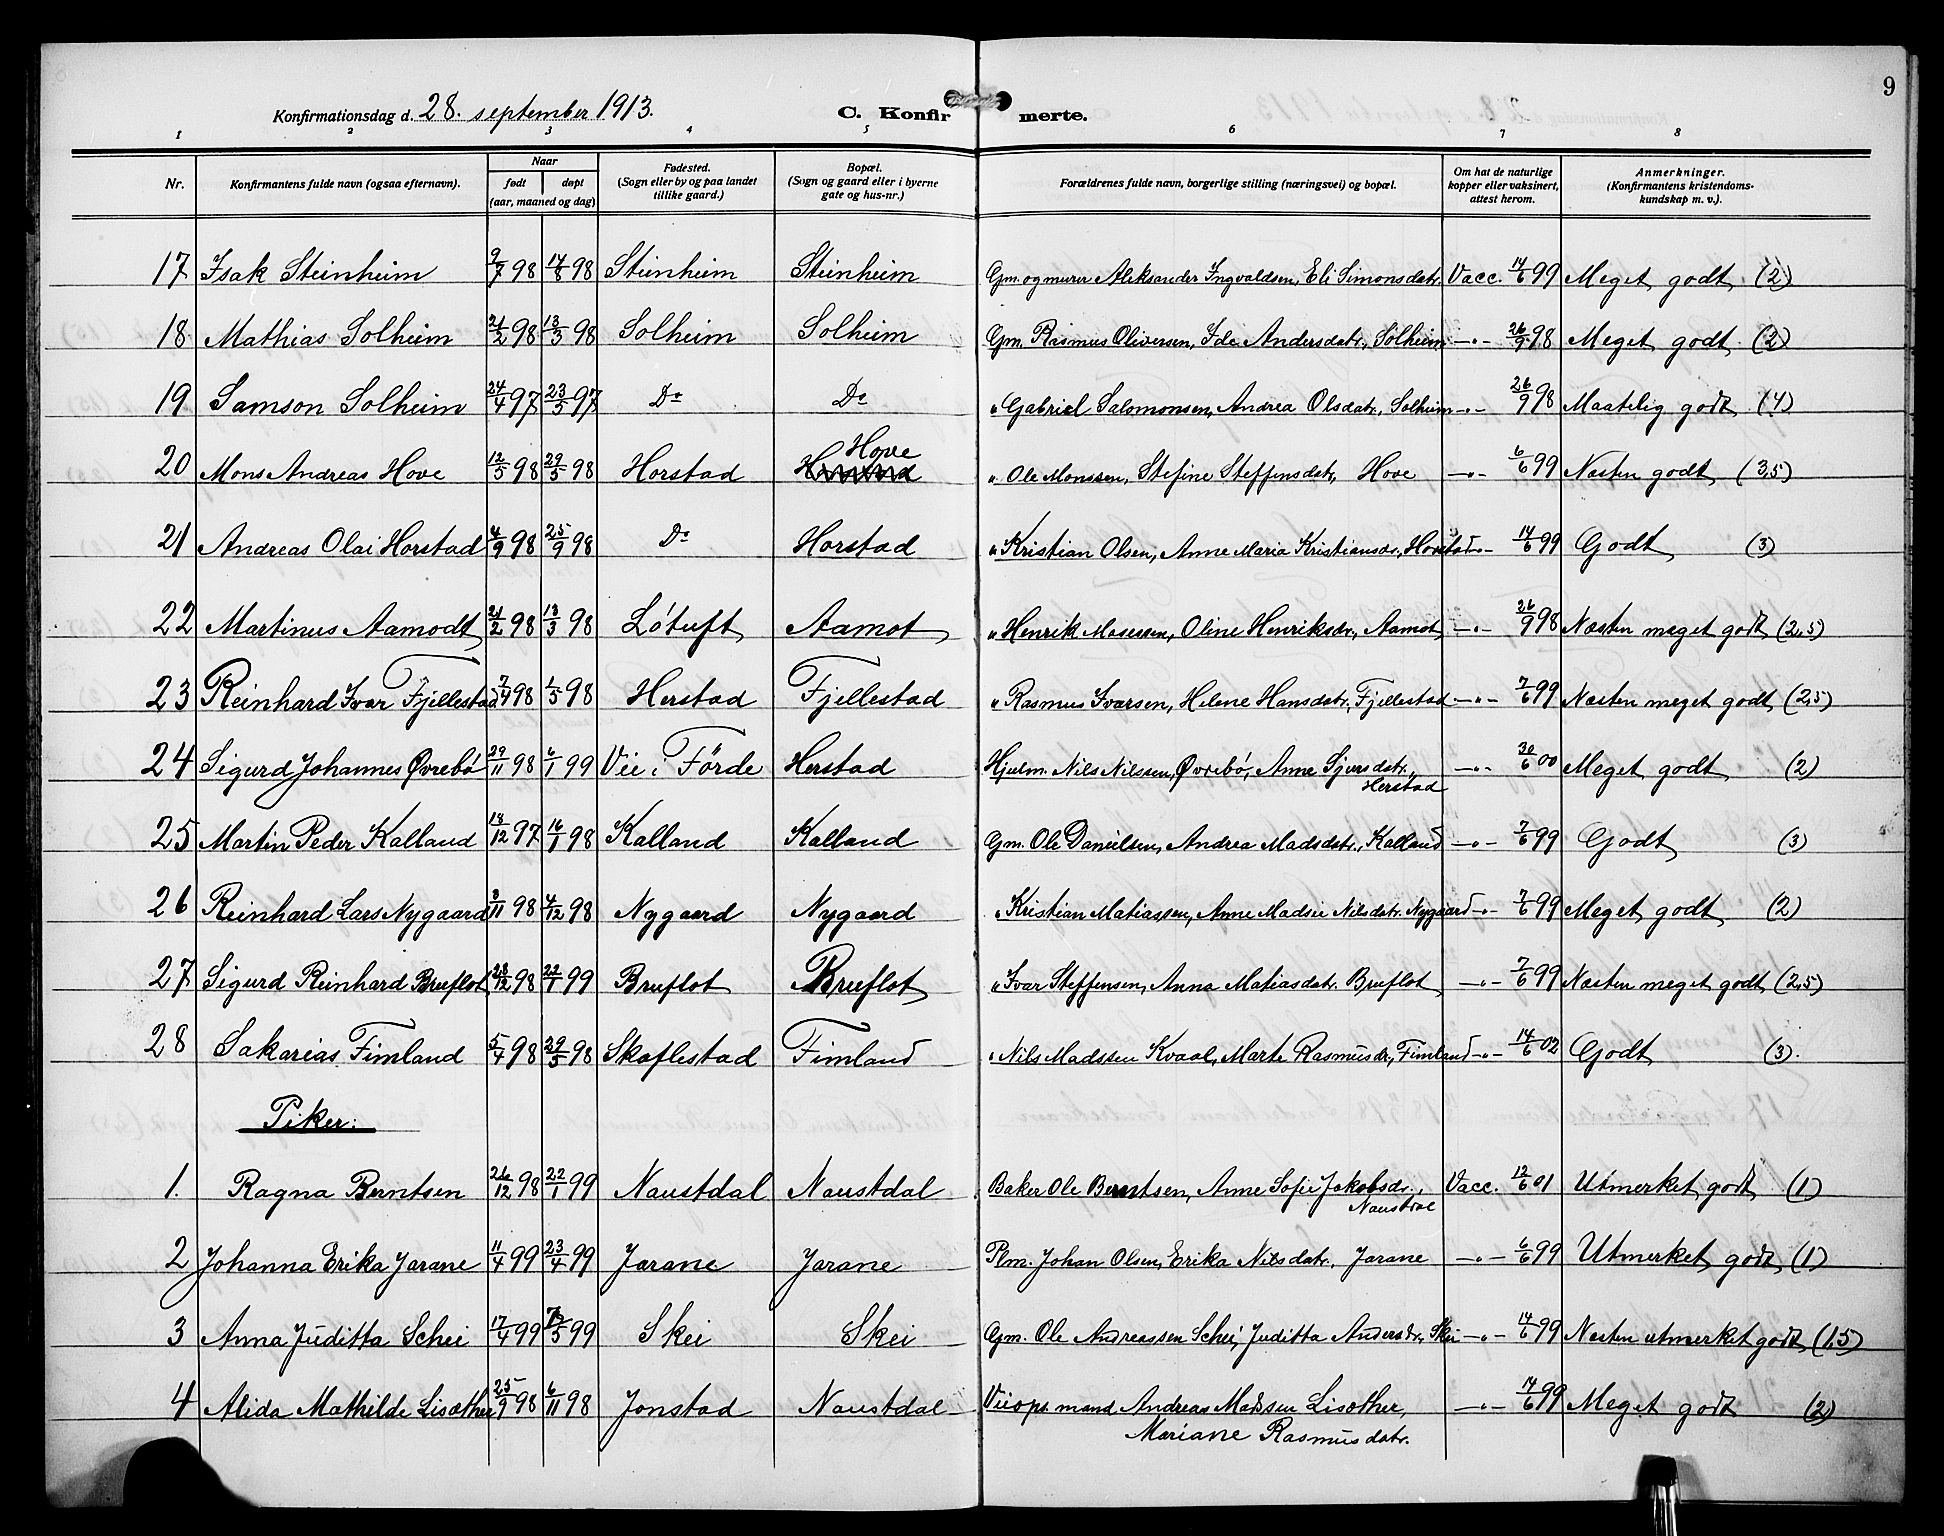 9
Konfirmationsdag d. 28. september 1913. C. Konfirmerte.
1 2 3 4 5 6 7 8
Nr. Konfirmantens fulde navn (ogsaa efternavn). Naar født døpt (aar, maaned og dag) Fødested. (Sogn eller by og paa landet tillike gaard.) Bopæl. (Sogn og gaard eller i byerne gate og hus-nr.) Forældrenes fulde navn, borgerlige stilling (næringsvei) og bopæl. Om hat de naturlige kopper eller vaksinert, attest herom. Anmerkninger. (Konfirmantens kristendoms-kundskap m. v.).
17 Isak Steinheim 9/7 98 14/8 98 Steinheim Steinheim Gm. og murer Aleksander Ingvaldsen, Eli Simonsdatr. Vacc. 14/6 99 Meget godt (2)
18 Mathias Solheim 21/2 98 13/3 98 Solheim Solheim Gm. Rasmus Oliversen, Ida Andersdatr., Solheim —„— 26/9 98 Meget godt (2)
19 Samson Solheim 24/4 97 23/5 97 Do Do „ Gabriel Salomonsen, Andrea Olsdatr., Solheim —„— 26/9 98 Maatelig godt (4)
20 Mons Andreas Hove 12/5 98 29/5 98 Horstad Hove „ Ole Monssen, Stefine Steffensdatr., Hove —„— 6/6 99 Næsten godt (3,5)
21 Andreas Olai Horstad 4/9 98 25/9 98 Do Horstad „ Kristian Olsen, Anne Maria Kristiansdr., Horstad —„— 14/6 99 Godt (3)
22 Martinus Aamodt 21/2 98 13/3 98 Løtuft Aamot „ Henrik Mosessen, Oline Henriksdr., Aamot —„— 26/9 98 Næsten meget godt (2,5)
23 Reinhard Ivar Fjellestad 7/4 98 1/5 98 Herstad Fjellestad „ Rasmus Ivarsen, Helene Hansdatr., Fjellestad —„— 7/6 99 Næsten meget godt (2,5)
24 Sigurd Johannes Øvrebø 29/11 98 6/1 99 Vie i Förde Herstad Hjulm. Nils Nilssen, Øvrebø, Anne Sjursdatr., Herstad —„— 30/6 00 Meget godt (2)
25 Martin Peder Kalland 18/12 97 16/1 98 Kalland Kalland Gm. Ole Danielsen, Andrea Madsdatr., Kalland —„— 7/6 99 Godt (3)
26 Reinhard Lars Nygaard 8/11 98 4/12 98 Nygaard Nygaard „ Kristian Matiassen, Anne Madsie Nilsdatr. Nygaard —„— 7/6 99 Meget godt (2)
27 Sigurd Reinhard Bruflot 28/12 98 22/1 99 Bruflot Bruflot „ Ivar Steffensen, Anna Matiasdatr. Bruflot —„— 7/6 99 Næsten meget godt (2,5)
28 Sakarias Fimland 5/4 98 29/5 98 Skaflestad Fimland „ Nils Madssen Kvaal, Marte Rasmusdr., Fimland —„— 14/6 02 Godt (3).
Piker:
1. Ragna Berntsen 26/12 98 22/1 99 Naustdal Naustdal Baker Ole Berntsen, Anne Sofie Jakobsdr., Naustdal Vacc. 12/6 01 Utmerket godt (1)
2 Johanna Erika Jarane 11/4 99 23/4 99 Jarane Jarane Plm. Johan Olsen, Erika Nilsdatr., Jarane —„— 6/6 99 Utmerket godt (1)
3 Anna Juditta Schei 17/4 99 /5 99 Skei Skei Gm. Ole Andreassen Schei, Juditta Andersdr., Skei —„— 14/6 99 Næsten utmerket godt (1,5)
4 Alida Mathilde Lisæther 25/9 98 6/11 98 Jonstad Naustdal Veiops. mand Andreas Madssen Lisæther, —„— 14/6 99 Meget godt (2)
Mariane Rasmusdatr.